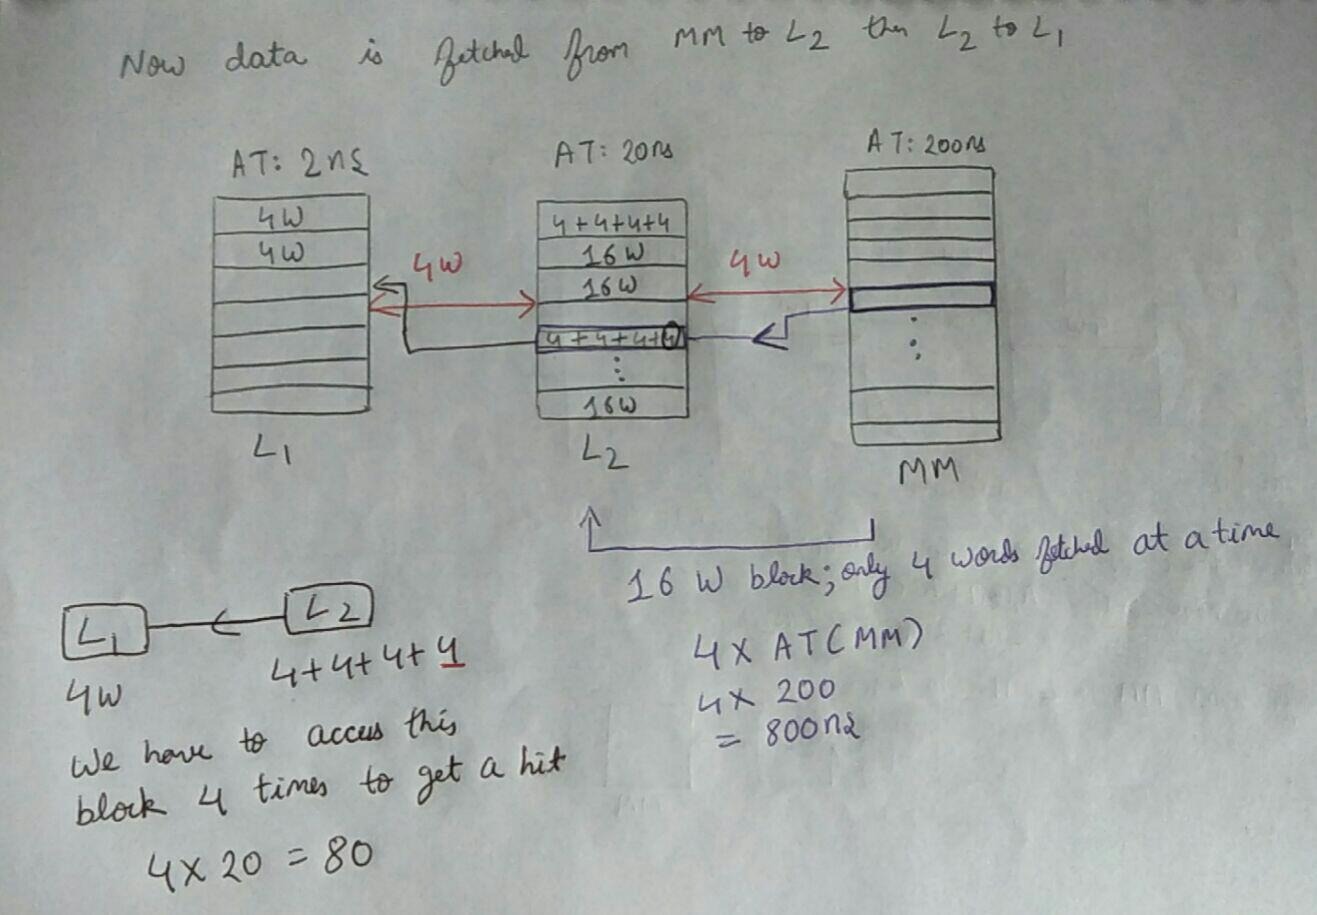 Now data is fetched from MM to L2 then L2 to L1
AT: 2ns
AT: 20ns
AT: 200ns
4W
4W
4W
4+4+4+4
16W
16W
4+4+4+4
16W
4W
L1
L2
MM
16 W block; only 4 words fetched at a time
4 X AT(MM)
4 X 200
= 800ns
L1
L2
4W
4+4+4+4
We have to access this
block 4 times to get a hit
4 X 20 = 80